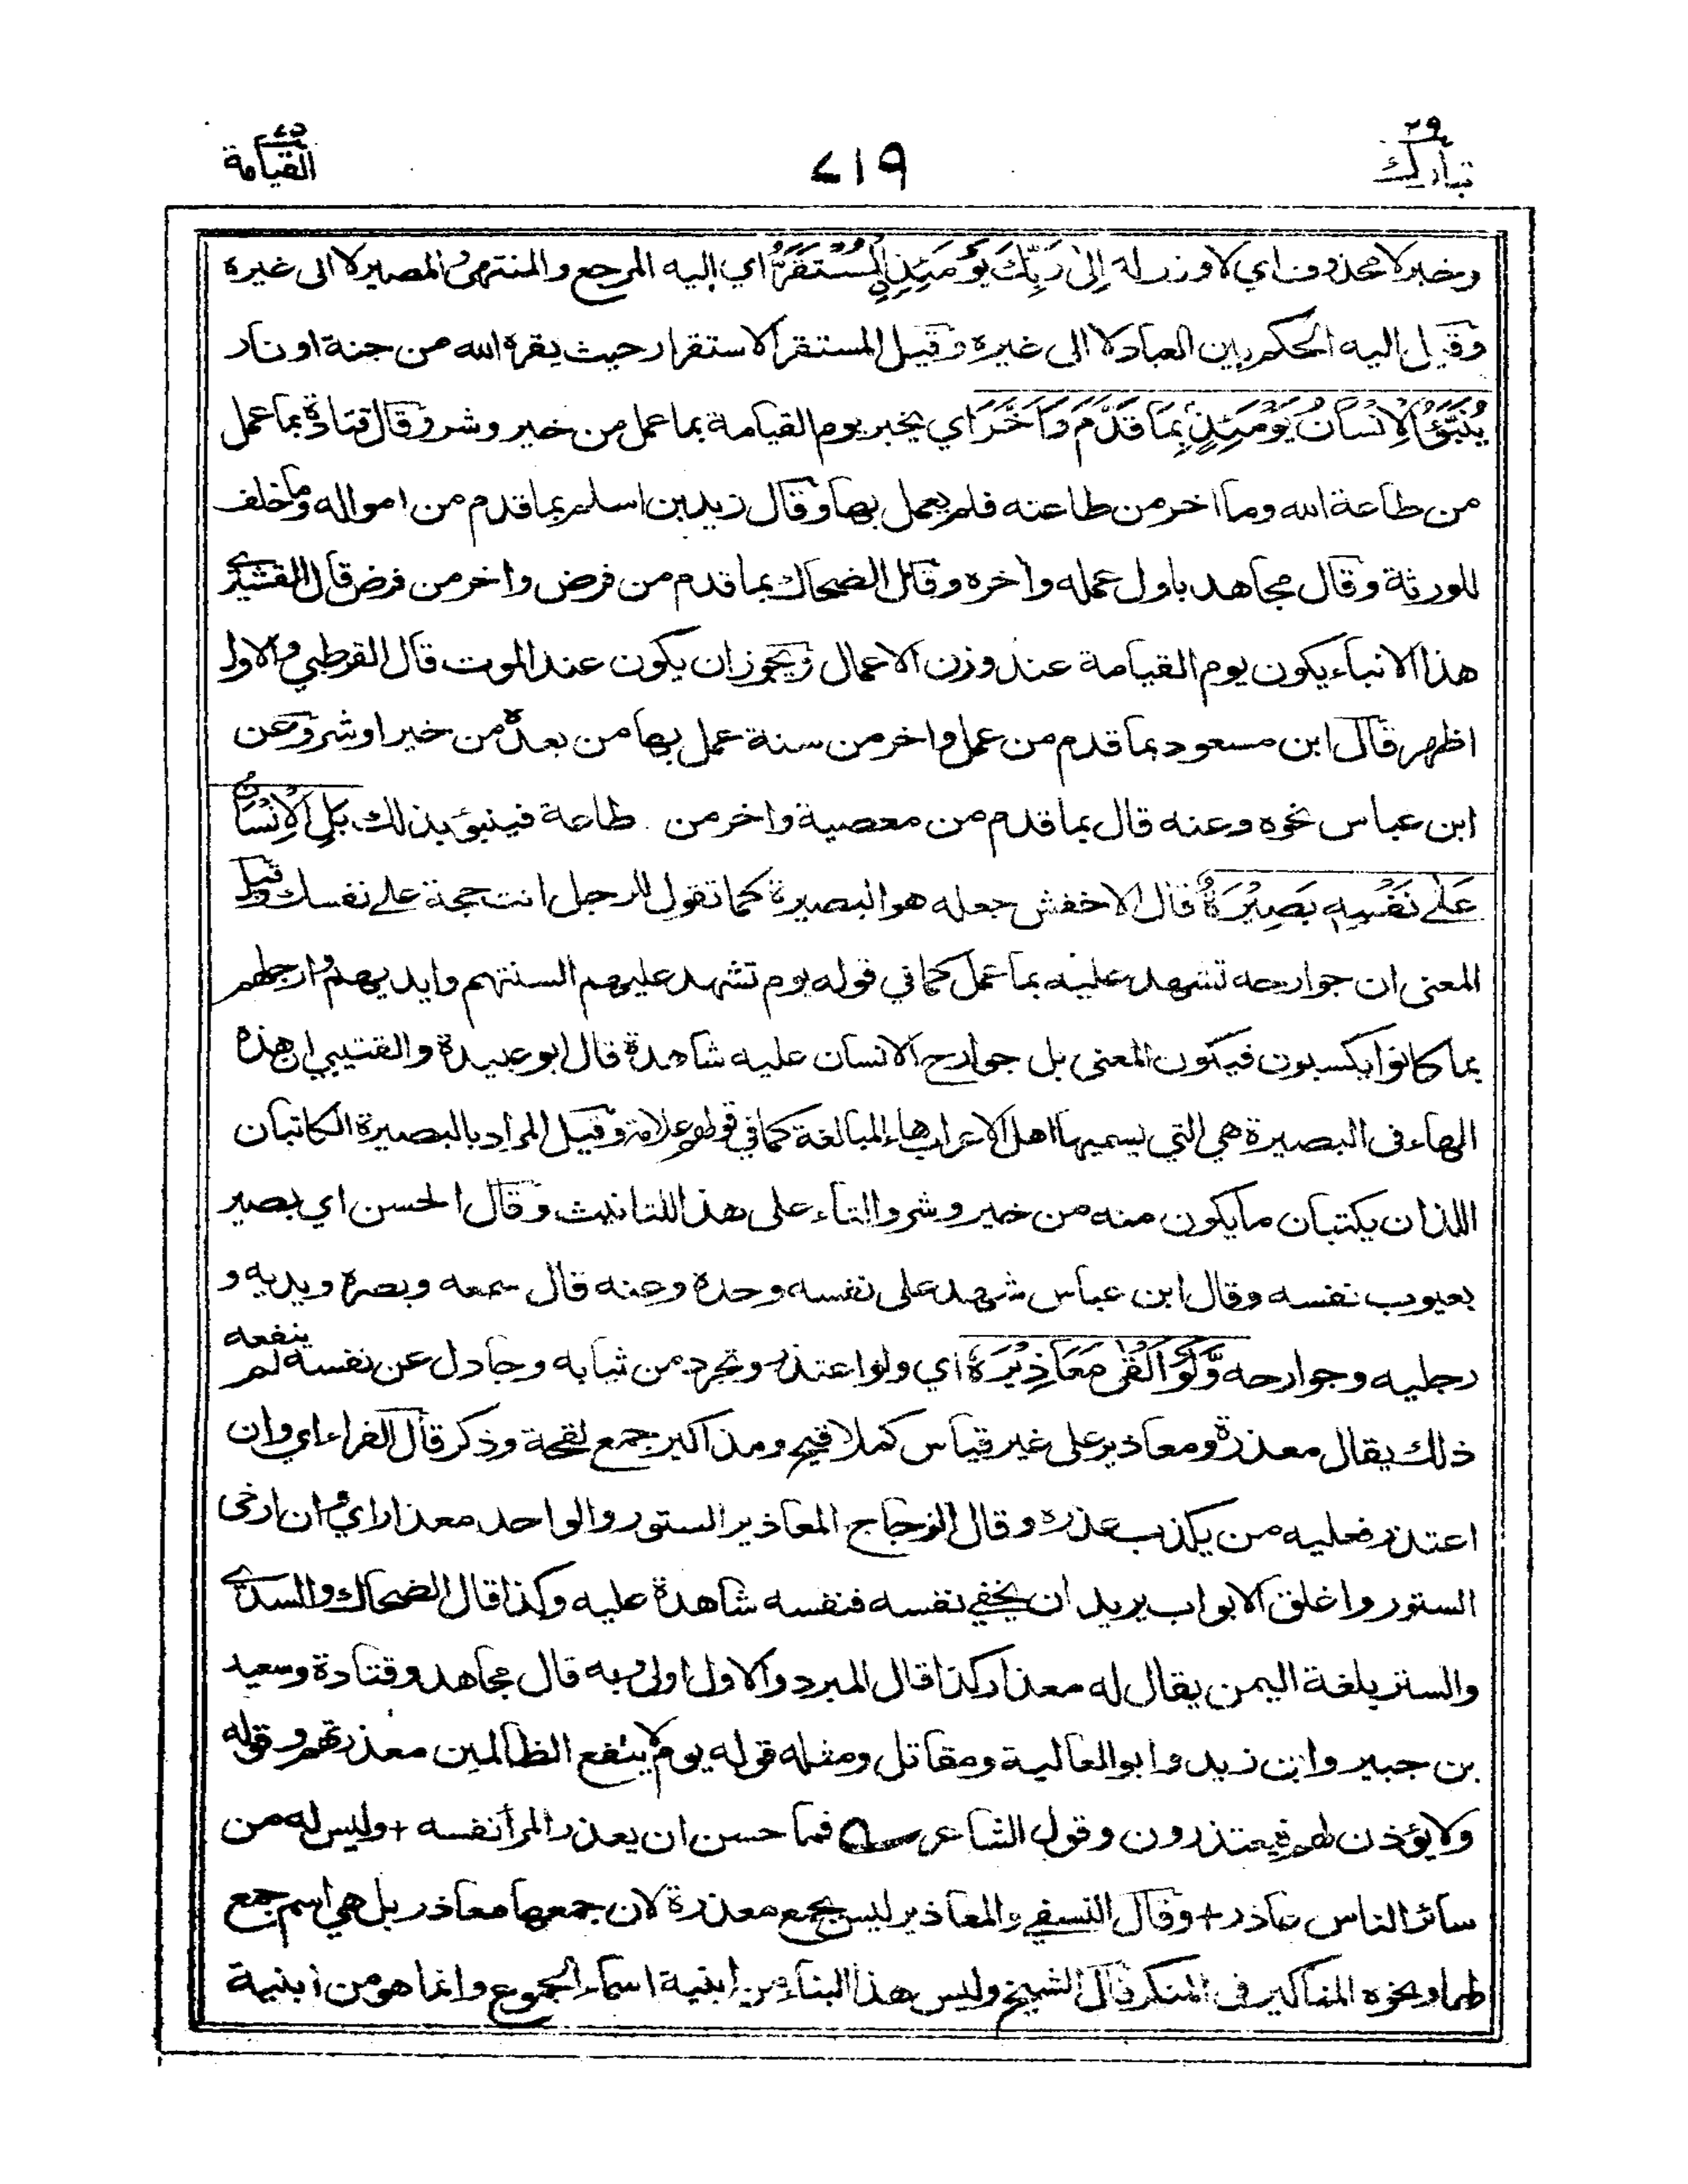 تبارك ٢٩
٤١٩
القيامة ٧٥
وخبر لا محذوف اي لا وزر له إِلَىٰ رَبِّكَ يَوْمَئِذِ الْمُسْتَقَرُّ اي اليه المرجع والمنتهى والمصير لا الى غيره
وقيل اليه الحكم بين العباد لا الى غيره وقيل المستقر الاستقرار حيث يقره الله من جنة او نار
يُنَبَّؤُ الْاِنْسَانُ يَوْمَئِذٍ بِمَا قَدَّمَ وَاَخَّرَ اي يخبر يوم القيامة بما عمل من خير وشر وقال قتادة بما عمل
من طاعة الله وما اخر من طاعته فلم يعمل بها وقال زيد بن اسلم بما قدم من امواله وما خلف
للورثة وقال مجاهد باول عمله واخره وقال الضحاك بما قدم من فرض واخر من فرض قال القشيري
هذا الانباء يكون يوم القيامة عند وزن الاعمال ويجوز ان يكون عند الموت قال القرطبي والاول
اظهر قال ابن مسعود بما قدم من عمل واخر من سنة عمل بها من بعده من خير او شر وعن
ابن عباس نحوه وعنه قال بما قدم من معصية واخر من طاعة فينبؤ بذلك بَلِ الْاِنْسَانُ
عَلٰى نَفْسِهٖ بَصِيْرَةٌ قال الاخفش جعله هو البصيرة كما تقول للرجل انت حجة على نفسك وقيل
المعنى ان جوارحه تشهد عليه بما عمل كما في قوله يوم تشهد عليهم السنتهم وايديهم وارجلهم
بما كانوا يكسبون فيكون المعنى بل جوارح الانسان عليه شاهدة قال ابو عبيدة والقتيبي ان هذه
الهاء في البصيرة هي التي يسميها اهل الاعراب هاء المبالغة كما في قولهم علامة وقيل المراد بالبصيرة الكاتبان
اللذان يكتبان ما يكون منه من خير وشر والتاء على هذا للتانيث وقال الحسن اي بصير
بعيوب نفسه وقال ابن عباس شهد على نفسه وحده وعنه قال سمعه وبصره ويديه و
رجليه وجوارحه وَّلَوْ اَلْقٰى مَعَاذِيْرَهٗ اي ولو اعتذر وتجرد من ثيابه وجادل عن نفسه لم ينفعه
ذلك يقال معذرة ومعاذير على غير قياس كملاقيح ومذاكير جمع لقحة وذكر قال الفراء اي وان
اعتذر فعليه من يكذب عذره وقال الزجاج المعاذير الستور والواحد معذار اي وان ارخى
الستور واغلق الابواب يريد ان يخفي نفسه فنفسه شاهدة عليه وكذا قال الضحاك والسدي
والستر بلغة اليمن يقال له معذار كذا قال المبرد والاول اولى وبه قال مجاهد وقتادة وسعيد
بن جبير وابن زيد وابو العالية ومقاتل ومثله قوله يوم لا ينفع الظالمين معذرتهم وقوله
ولا يؤذن لهم فيعتذرون وقول الشاعر فما حسن ان يعذر المرأ نفسه + وليس له من
سائر الناس عاذر + وقال النسفي والمعاذير ليس بجمع معذرة لان جمعها معاذر بل هي اسم جمع
لها ونحوه المناكير في المنكر قال الشيخ وليس هذا البناء من ابنية اسماء الجموع وانما هو من ابنية